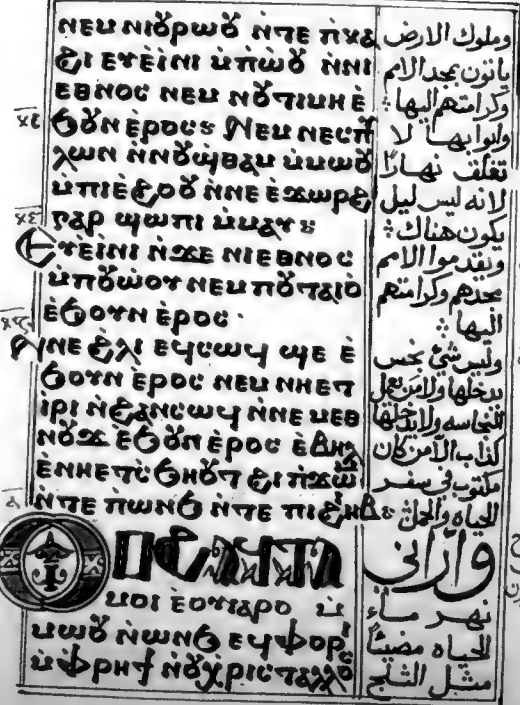 ⲛⲉⲙ ⲛⲓȣⲣⲱȣ ⲛ̀ⲧⲉ ⲡ̀ⲕⲁ
ϩⲓ ⲉⲩⲉ̀ⲓⲛⲓ ⲙ̀ⲡⲱ̀ȣ ⲛ̀ⲛⲓ
ⲉⲑⲛⲟⲥ ⲛⲉⲙ ⲛȣⲧⲓⲙⲏ ⲉ̀
ϧȣⲛ ⲉ̀ⲣⲟⲥ: Ⲛⲉⲙ ⲛⲉⲥⲡⲩ
ⲗⲱⲛ ⲛ̀ⲛȣϣ̀ⲑⲁⲙ ⲙ̀ⲙⲱȣ
ⲙ̀ⲡⲓⲉ̀ϩⲟȣ ⲛ̀ⲛⲉ ⲉ̀ϫⲱⲣϩ
ⲅⲁⲣ ϣⲱⲡⲓ ⲙ̀ⲙⲁⲩ:
Ⲉⲩⲉ̀ⲓⲛⲓ ⲛ̀ϫⲉ ⲛⲓⲉⲑⲛⲟⲥ
ⲙ̀ⲡȣⲱ̀ⲟⲩ ⲛⲉⲙ ⲡȣⲧⲁⲓⲟ̀
ⲉ̀ϧⲟⲩⲛ ⲉ̀ⲣⲟⲥ·
Ⲛⲛⲉ ϩ̀ⲗⲓ ⲉϥⲥⲱϥ ϣⲉ ⲉ̀
ϧⲟⲩⲛ ⲉ̀ⲣⲟⲥ ⲛⲉⲙ ⲛⲏⲉⲧ
ⲓ̀ⲣⲓ ⲛ̀ϩⲁⲛⲥⲱϥ ⲛ̀ⲛⲉ ⲙⲉⲑ
ⲛȣϫ ⲉ̀ϧȣⲛ ⲉ̀ⲣⲟⲥ ⲉ̀ⲃⲏⲗ
ⲉ̀ⲛⲏⲉⲧⲥ̀ϧⲏȣⲧ ϩⲓ ⲡ̀ϫⲱⲙ
ⲛ̀ⲧⲉ ⲡ̀ⲱⲛϧ ⲛ̀ⲧⲉ ⲡⲓϩⲓⲏⲃ:
ⲟⲩⲟϩ ⲁϥⲧⲁ
ⲙⲟⲓ ⲉ̀ⲟⲩⲓⲁⲣⲟ ⲙ̀
ⲙⲱȣ ⲛ̀ⲱⲛϧ ⲉϥⲫⲟⲣⲓ
ⲙ̀ⲫⲣⲏϯ ⲛ̀ȣⲭⲣⲓⲥⲧⲁⲗⲗⲟⲥ
وملوك الارض
ياتون بمجد الامم
وكرامتهم اليها:
وابوابها لا
تغلق نهارًا
لانه ليس ليل
يكون هناك:
ويقدموا الامم
مجدهم وكرامتهم
اليها:
وليس شئ نجس
يدخلها ولا من يعمل
النجاسه ولا يدخلها
كذاب الا من كان
مكتوب فى سفر
الحياه والحمل:
وآرانى
نهر ماء
الحياه مضيئًا
مثل الثلج